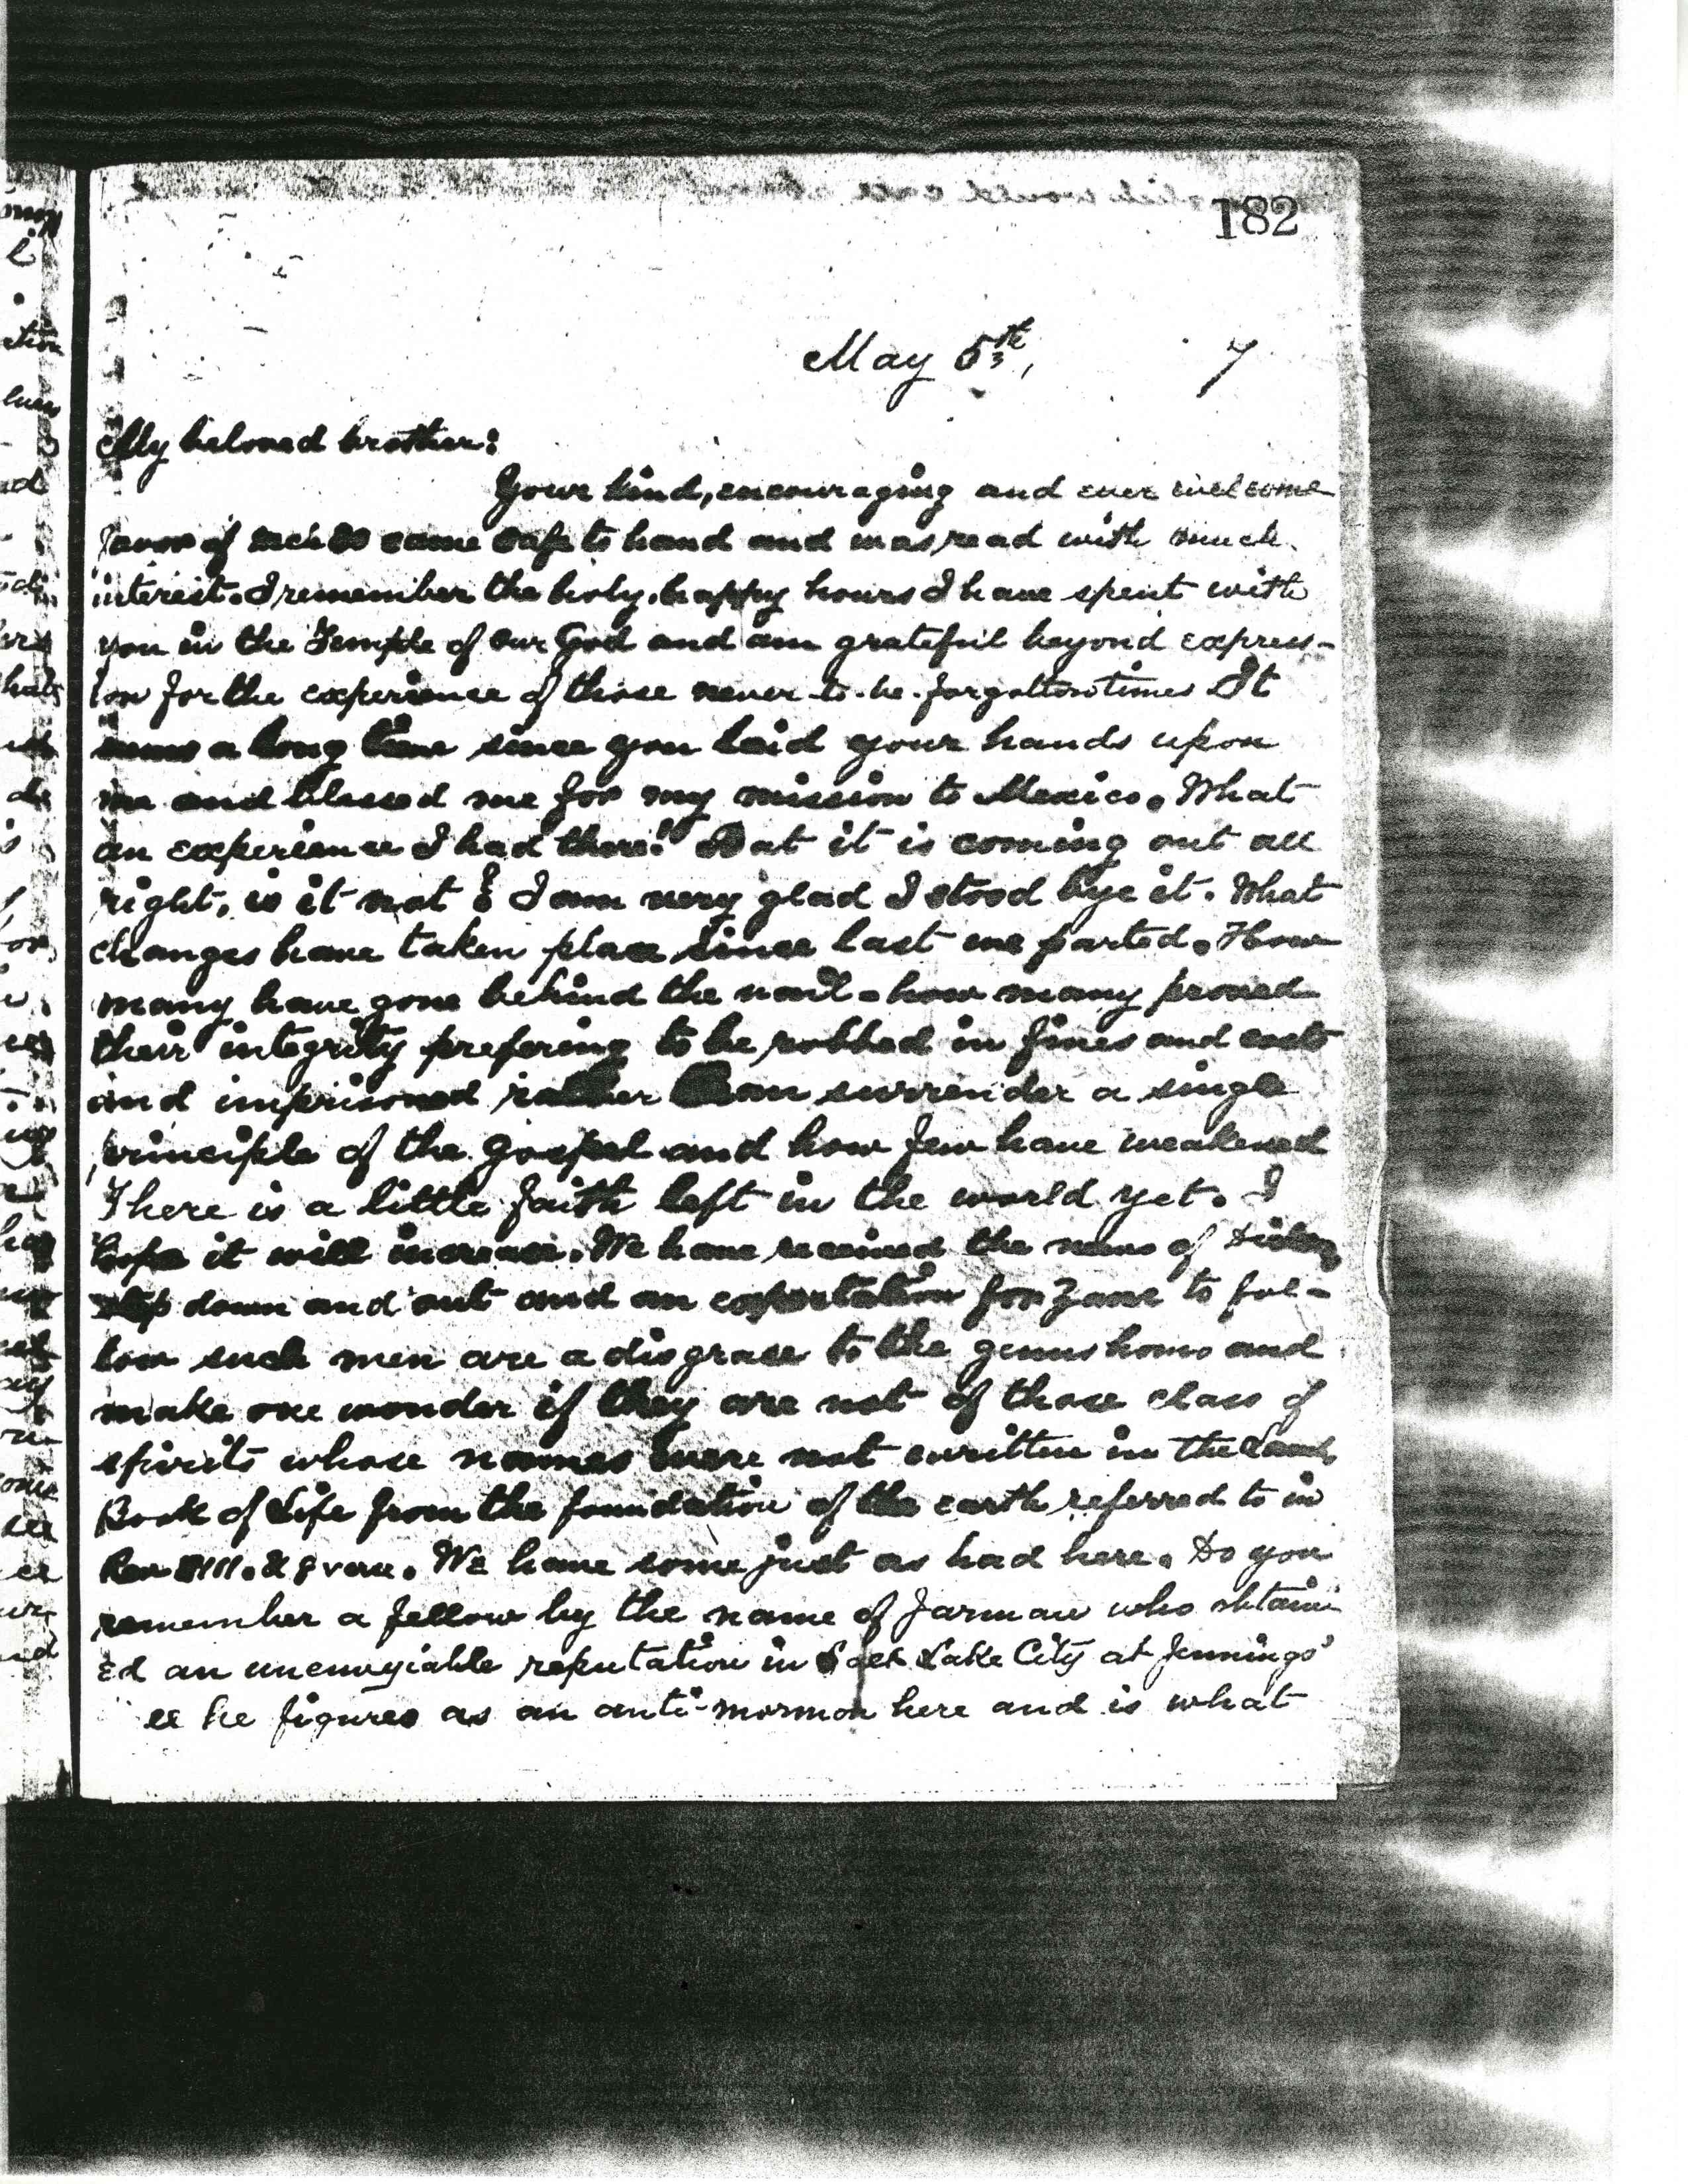 182
May 5th, 7
My beloved brother:
Your kind, encouraging and ever welcome
favor of came safe to hand and was read with much
interest. I remember the holy, happy hours I have spent with
you in the Temple of our God and am grateful beyond express-
ion for the experience of those never-to-be-forgotten times It
seems a long time since you laid your hands upon
me and blessed me for my mission to Mexico. What
an experience I had there! But it is coming out all
right, is it not? I am very glad I stood bye it. What
changes have taken place since last we parted. How
many have gone behind the vail - how many proved
their integrity prefering to be robbed in fines and costs
and imprisoned rather than surrender a single
principle of the gospel and how few have weakened
There is a little faith left in the world yet. I
hope it will increase. We have received the news of
step down and out and an expectation for Zane to fol-
low such men are a disgrace to the genus homo and
make one wonder if they are not of those class of
spirits whose names were not written in the Lambs
Book of Life from the foundation of the earth referred to in
Rev XIII. & 8 verse. We have some just as bad here. Do you
remember a fellow by the name of Jarman who obtain-
ed an unenvyiable reputation in Salt Lake City at Jennings'
he figures as an anti-mormon here and is what